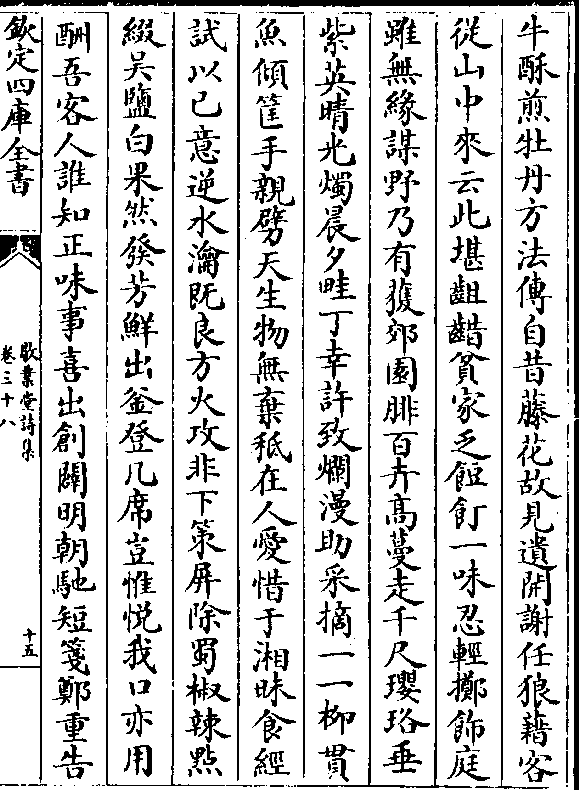 牛酥煎牡丹方法傳自昔藤花故見遺開謝任狼藉客
從山中來云此堪齟齰貧家乏飣餖一味忍輕擲飾庭
雖無緣謀野乃有獲郊園腓百卉高蔓走千尺瓔珞垂
紫英晴光燭晨夕畦丁幸許致爛漫助采摘一一柳貫
魚傾筐手親劈天生物無棄秪在人愛惜于湘昧食經
試以已意逆水瀹旣良方火攻非下策屏除蜀椒辣點
綴吳鹽白果然發芳鮮出釜登几席豈惟悅我口亦用
酬吾客人誰知正味事喜出創闢明朝馳短箋鄭重告
欽定四庫全書
敬業堂詩集
卷三十八
十五